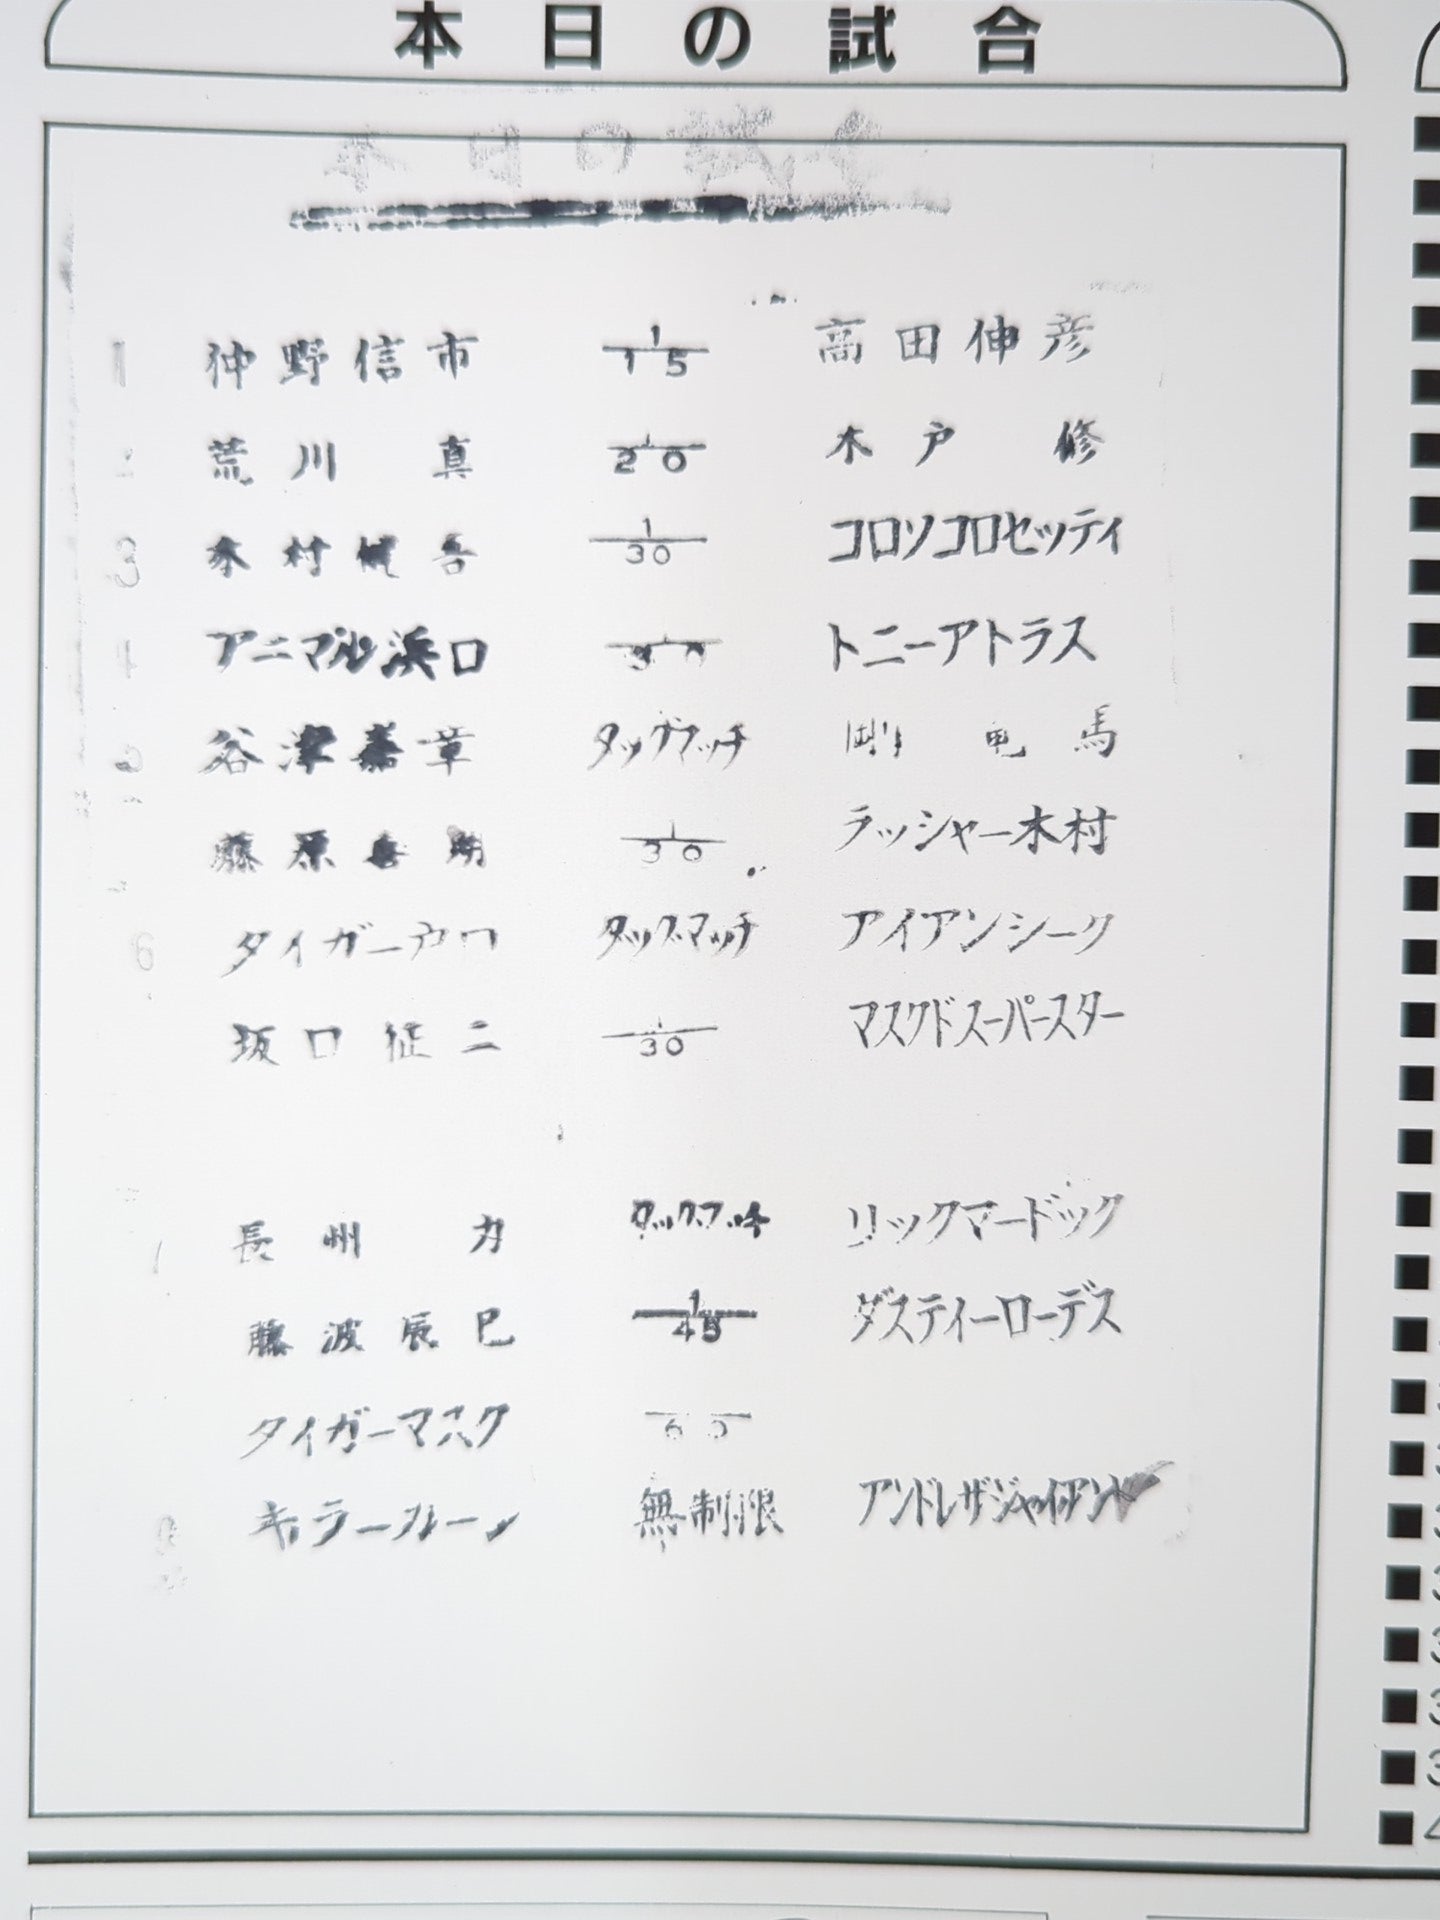 本日の試合
本日の試合
1 仲野信市 1/15 高田伸彦
2 荒川 真 1/20 木戸 修
3 木村健吾 1/30 コロソコロセッティ
4 アニマル浜口 1/30 トニーアトラス
谷津嘉章 タッグマッチ 剛 竜馬
藤原喜明 1/30 ラッシャー木村
6 タイガー戸口 タッグマッチ アイアンシーク
坂口征二 1/30 マスクドスーパースター
長州 力 タッグマッチ リックマードック
藤波辰巳 1/45 ダスティーローデス
タイガーマスク 60
キラーカーン 無制限 アンドレザジャイアント